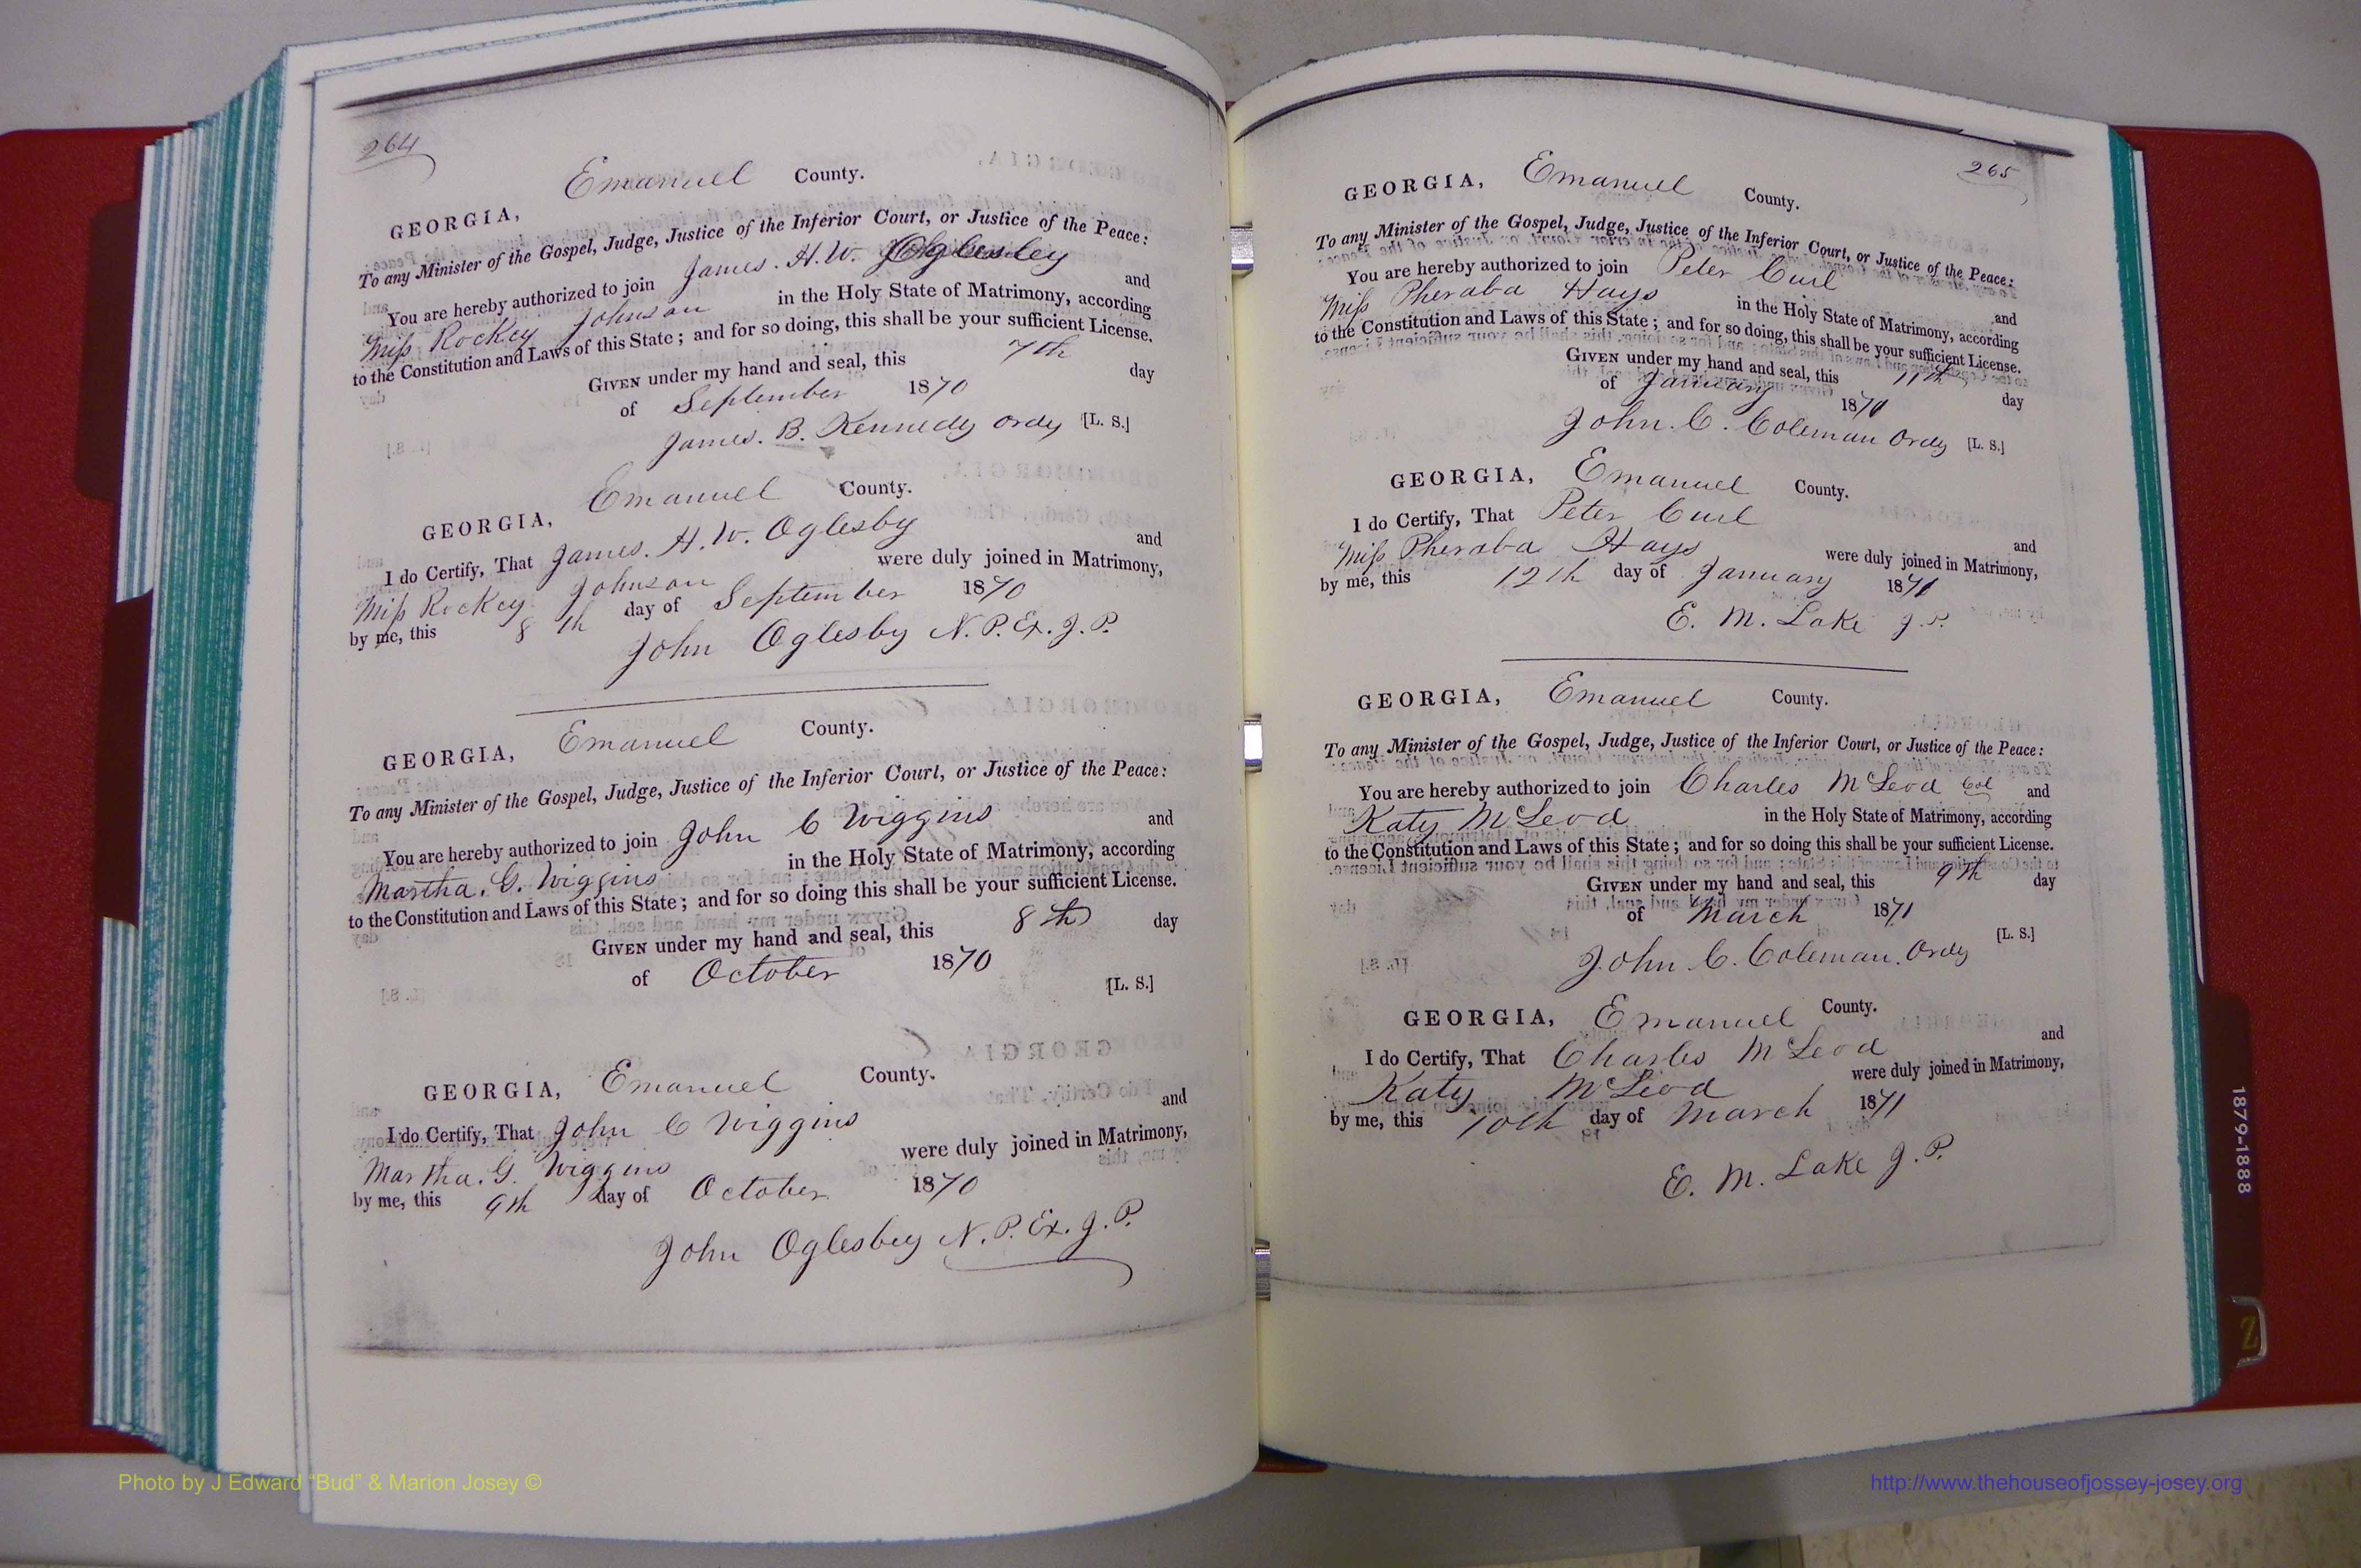 264
GEORGIA, Emanuel County.
To any Minister of the Gospel, Judge, Justice of the Inferior Court, or Justice of the Peace:
You are hereby authorized to join James. H. W. Oglesby and
Miss Rockey Johnson in the Holy State of Matrimony, according
to the Constitution and Laws of this State; and for so doing, this shall be your sufficient License.
GIVEN under my hand and seal, this 7th day
of September 1870
James. B. Kennedy Ordy [L. S.]
GEORGIA, Emanuel County.
I do Certify, That James. H. W. Oglesby and
Miss Rockey Johnson were duly joined in Matrimony,
by me, this 8th day of September 1870
John Oglesby N. P. Ex. J. P.
GEORGIA, Emanuel County.
To any Minister of the Gospel, Judge, Justice of the Inferior Court, or Justice of the Peace:
You are hereby authorized to join John C Wiggins and
Martha. G. Wiggins in the Holy State of Matrimony, according
to the Constitution and Laws of this State; and for so doing this shall be your sufficient License.
GIVEN under my hand and seal, this 8th day
of October 1870
[L. S.]
GEORGIA, Emanuel County.
I do Certify, That John C Wiggins and
Martha. G. Wiggins were duly joined in Matrimony,
by me, this 9th day of October 1870
John Oglesby N. P. Ex. J. P.
265
GEORGIA, Emanuel County.
To any Minister of the Gospel, Judge, Justice of the Inferior Court, or Justice of the Peace:
You are hereby authorized to join Peter Curl and
Miss Pheraba Hays in the Holy State of Matrimony, according
to the Constitution and Laws of this State; and for so doing, this shall be your sufficient License.
GIVEN under my hand and seal, this 11th day
of January 1871
John. C. Coleman Ordy [L. S.]
GEORGIA, Emanuel County.
I do Certify, That Peter Curl and
Miss Pheraba Hays were duly joined in Matrimony,
by me, this 12th day of January 1871
E. M. Lake J. P.
GEORGIA, Emanuel County.
To any Minister of the Gospel, Judge, Justice of the Inferior Court, or Justice of the Peace:
You are hereby authorized to join Charles McLeod Col and
Katy McLeod in the Holy State of Matrimony, according
to the Constitution and Laws of this State; and for so doing this shall be your sufficient License.
GIVEN under my hand and seal, this 9th day
of March 1871
John C. Coleman. Ordy [L. S.]
GEORGIA, Emanuel County.
I do Certify, That Charles McLeod and
Katy McLeod were duly joined in Matrimony,
by me, this 10th day of March 1871
E. M. Lake J. P.
1879-1888
Z
Photo by J Edward “Bud” & Marion Josey ©
http://www.thehouseofjossey-josey.org